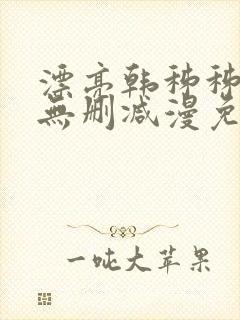 漂亮韩秭秭
無删减漫免
一吨大苹果